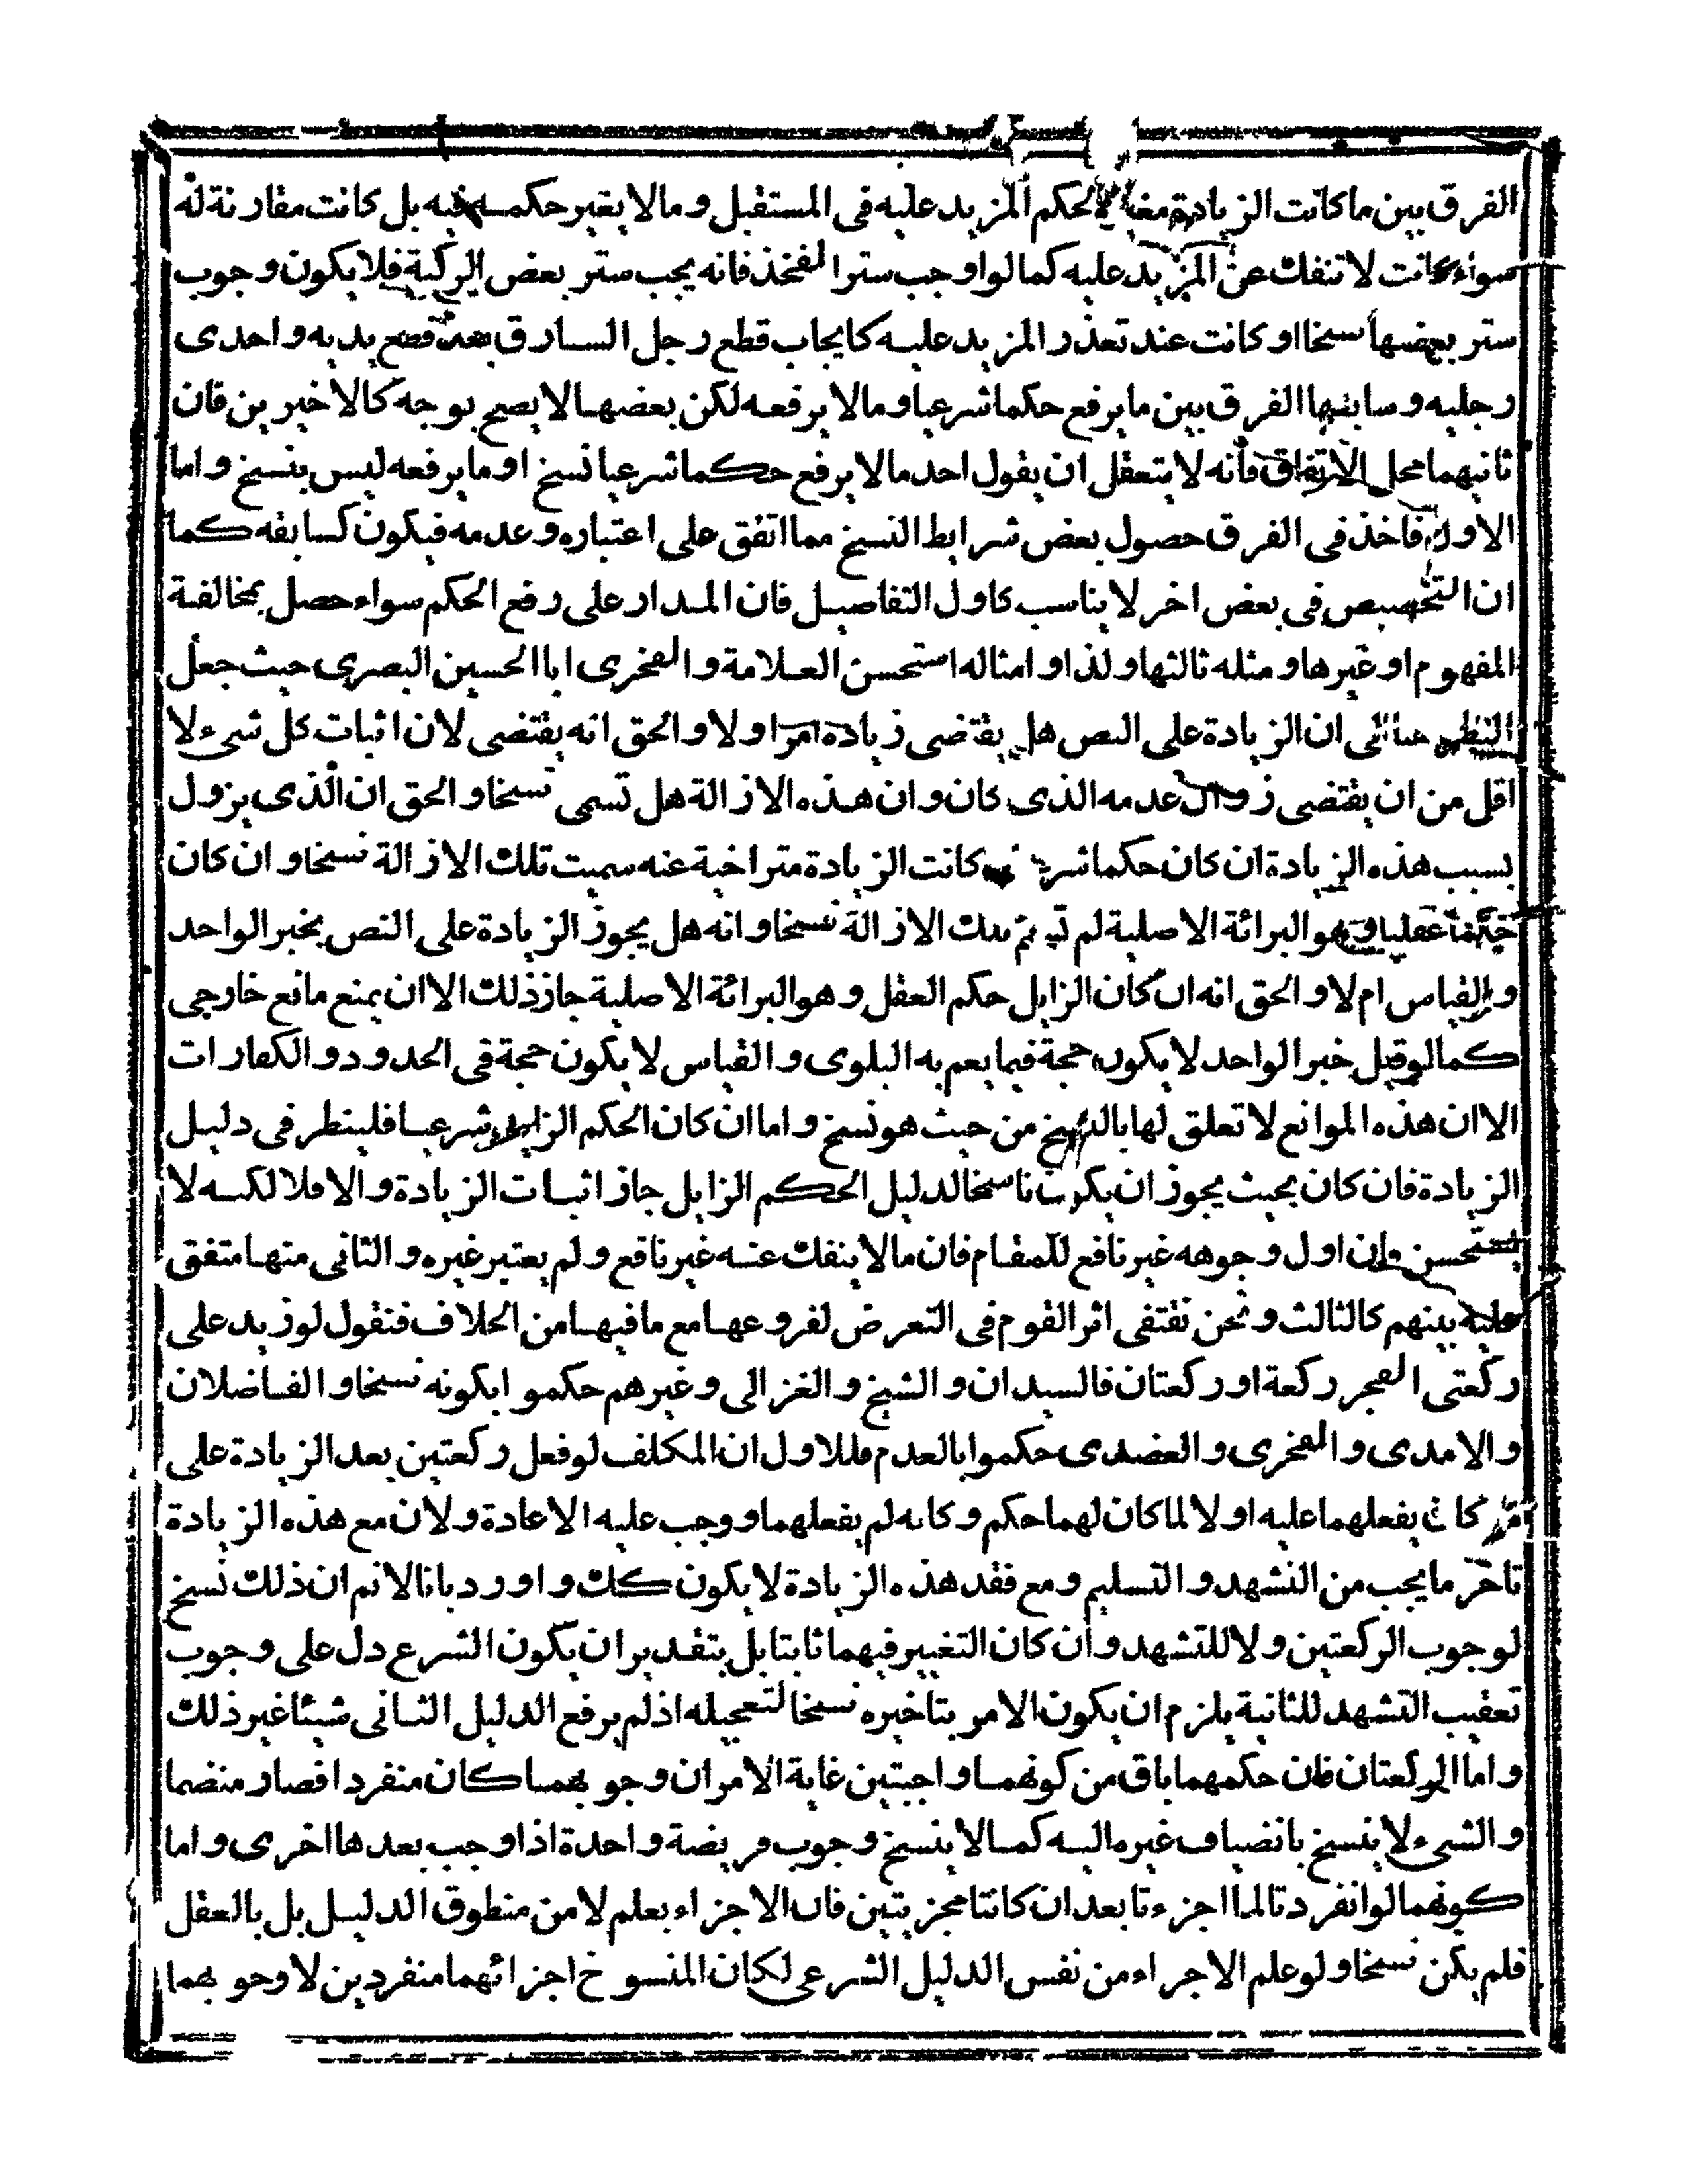 الفرق بين ما كانت الزيادة مغيرة لحكم المزيد عليه فى المستقبل و ما لا يغير حكمه فيه بل كانت مقارنة له
سواء كانت لا تنفك عن المزيد عليه كما لو اوجب ستر الفخذ فانه يجب ستر بعض الركبة فلا يكون وجوب
ستر بعضها نسخا او كانت عند تعذر المزيد عليه كايجاب قطع رجل السارق بعد قطع يديه و احدى
رجليه و سابعها الفرق بين ما يرفع حكما شرعيا و ما لا يرفعه لكن بعضها لا يصح بوجه كالاخيرين فان
ثانيهما محل الاتفاق فانه لا يتعقل ان يقول احد ما لا يرفع حكما شرعيا نسخ او ما يرفعه ليس بنسخ و اما
الاول فاخذ فى الفرق حصول بعض شرايط النسخ مما اتفق على اعتباره و عدمه فيكون كسابقه كما
ان التخصيص فى بعض اخر لا يناسب كاول التفاصيل فان المدار على رفع الحكم سواء حصل بمخالفة
المفهوم او غيرها و مثله ثالثها و لذا و امثاله استحسن العلامة و الفخرى ابا الحسين البصرى حيث جعل
النظر هنا فى ان الزيادة على النص هل يقتضى زيادة امر اولا و الحق انه يقتضى لان اثبات كل شىء لا
اقل من ان يقتضى زوال عدمه الذى كان و ان هذه الازالة هل تسمى نسخا و الحق ان الذى يزول
بسبب هذه الزيادة ان كان حكما كانت الزيادة متراخية عنه سميت تلك الازالة نسخا و ان كان
حكما عقليا و هو البرائة الاصلية لم الازالة نسخا و انه هل يجوز الزيادة على النص بخبر الواحد
و القياس ام لا و الحق انه ان كان الزايل حكم العقل و هو البرائة الاصلية جاز ذلك الا ان يمنع مانع خارجى
كما لو قيل خبر الواحد لا يكون حجة فيما يعم به البلوى و القياس لا يكون حجة فى الحدود و الكفارات
الا ان هذه الموانع لا تعلق لها بالنسخ من حيث هو نسخ و اما ان كان الحكم الزايل شرعيا فلينظر فى دليل
الزيادة فان كان بحيث يجوز ان يكون ناسخا لدليل الحكم الزايل جاز اثبات الزيادة و الا فلا لكنه لا
يستحسن فان اول وجوهه غير نافع للمقام فان ما لا ينفك عنه غير نافع و لم يعتبر غيره و الثانى منها متفق
عليه بينهم كالثالث و نحن نقتفى اثر القوم فى التعرض لفروعها مع ما فيها من الخلاف فنقول لو زيد على
ركعتى الفجر ركعة او ركعتان فالسيدان و الشيخ و الغزالى و غيرهم حكموا بكونه نسخا و الفاضلان
و الامدى و الفخرى و العضدى حكموا بالعدم فللاول ان المكلف لو فعل ركعتين بعد الزيادة على
كان يفعلهما عليه اولا لما كان لهما حكم و كانه لم يفعلهما و وجب عليه الاعادة و لان مع هذه الزيادة
تاخر ما يجب من التشهد و التسليم و مع فقد هذه الزيادة لا يكون كك و اورد بانا لا نم ان ذلك نسخ
لوجوب الركعتين و لا للتشهد و ان كان التغيير فيهما ثابتا بل بتقدير ان يكون الشرع دل على وجوب
تعقيب التشهد للثانية يلزم ان يكون الامر بتاخيره نسخا لتعجيله اذ لم يرفع الدليل الثانى شيئا غير ذلك
و اما الركعتان فان حكمهما باق من كونهما واجبتين غاية الامر ان وجوبهما كان منفردا فصار منضما
و الشىء لا ينسخ بانضياف غيره اليه كما لا ينسخ وجوب فريضة واحدة اذا وجب بعدها اخرى و اما
كونهما لو انفردتا لما اجزءتا بعد ان كانتا مجزيتين فان الاجزاء يعلم لا من منطوق الدليل بل بالعقل
فلم يكن نسخا و لو علم الاجزاء من نفس الدليل الشرعى لكان المنسوخ اجزائهما منفردين لا وجوبهما